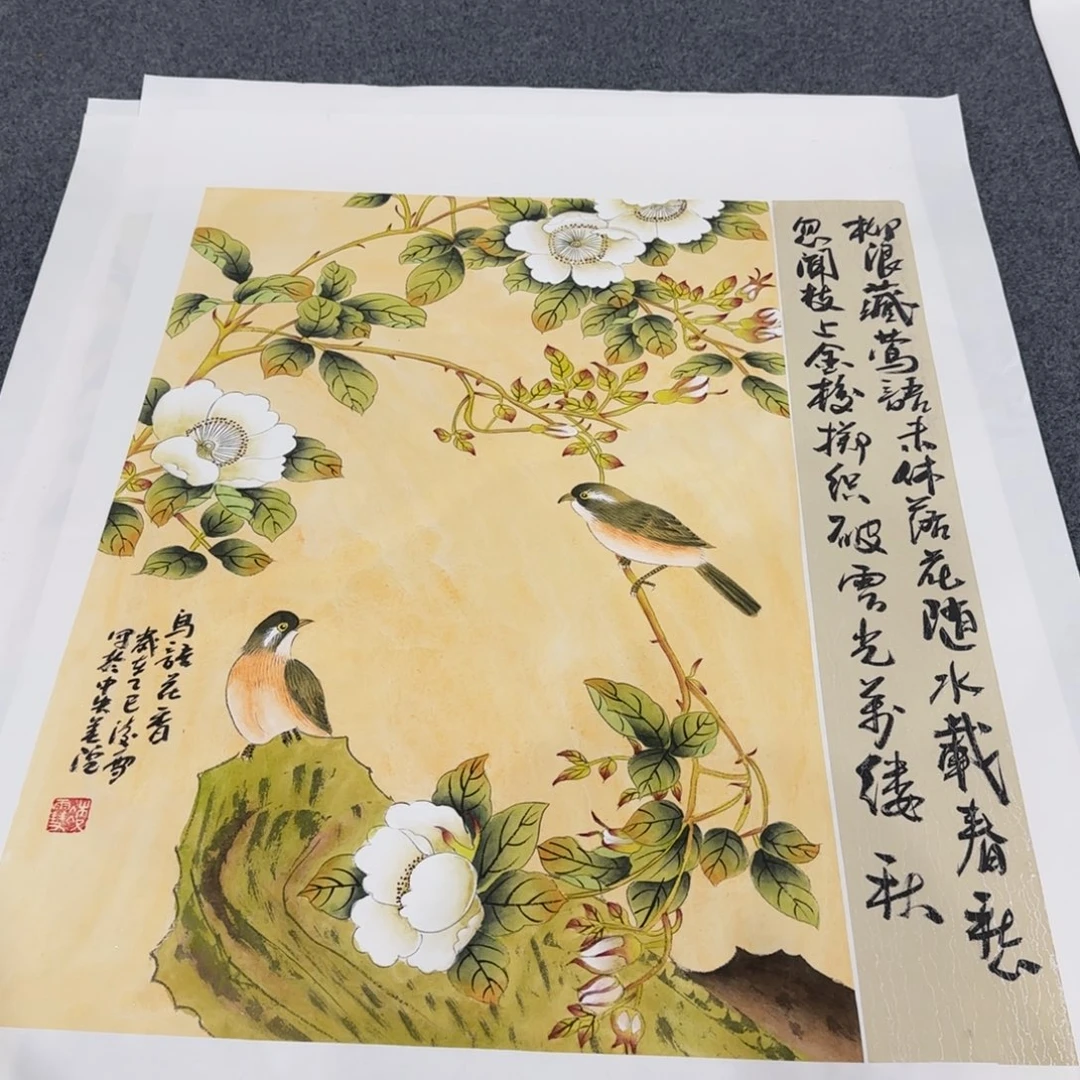 柳浪藏莺語未休落花随水載春愁
忽闻枝上金梭掷织破雲光萬缕秋
鸟語花香
歲在乙巳凌雪
写於中央美院